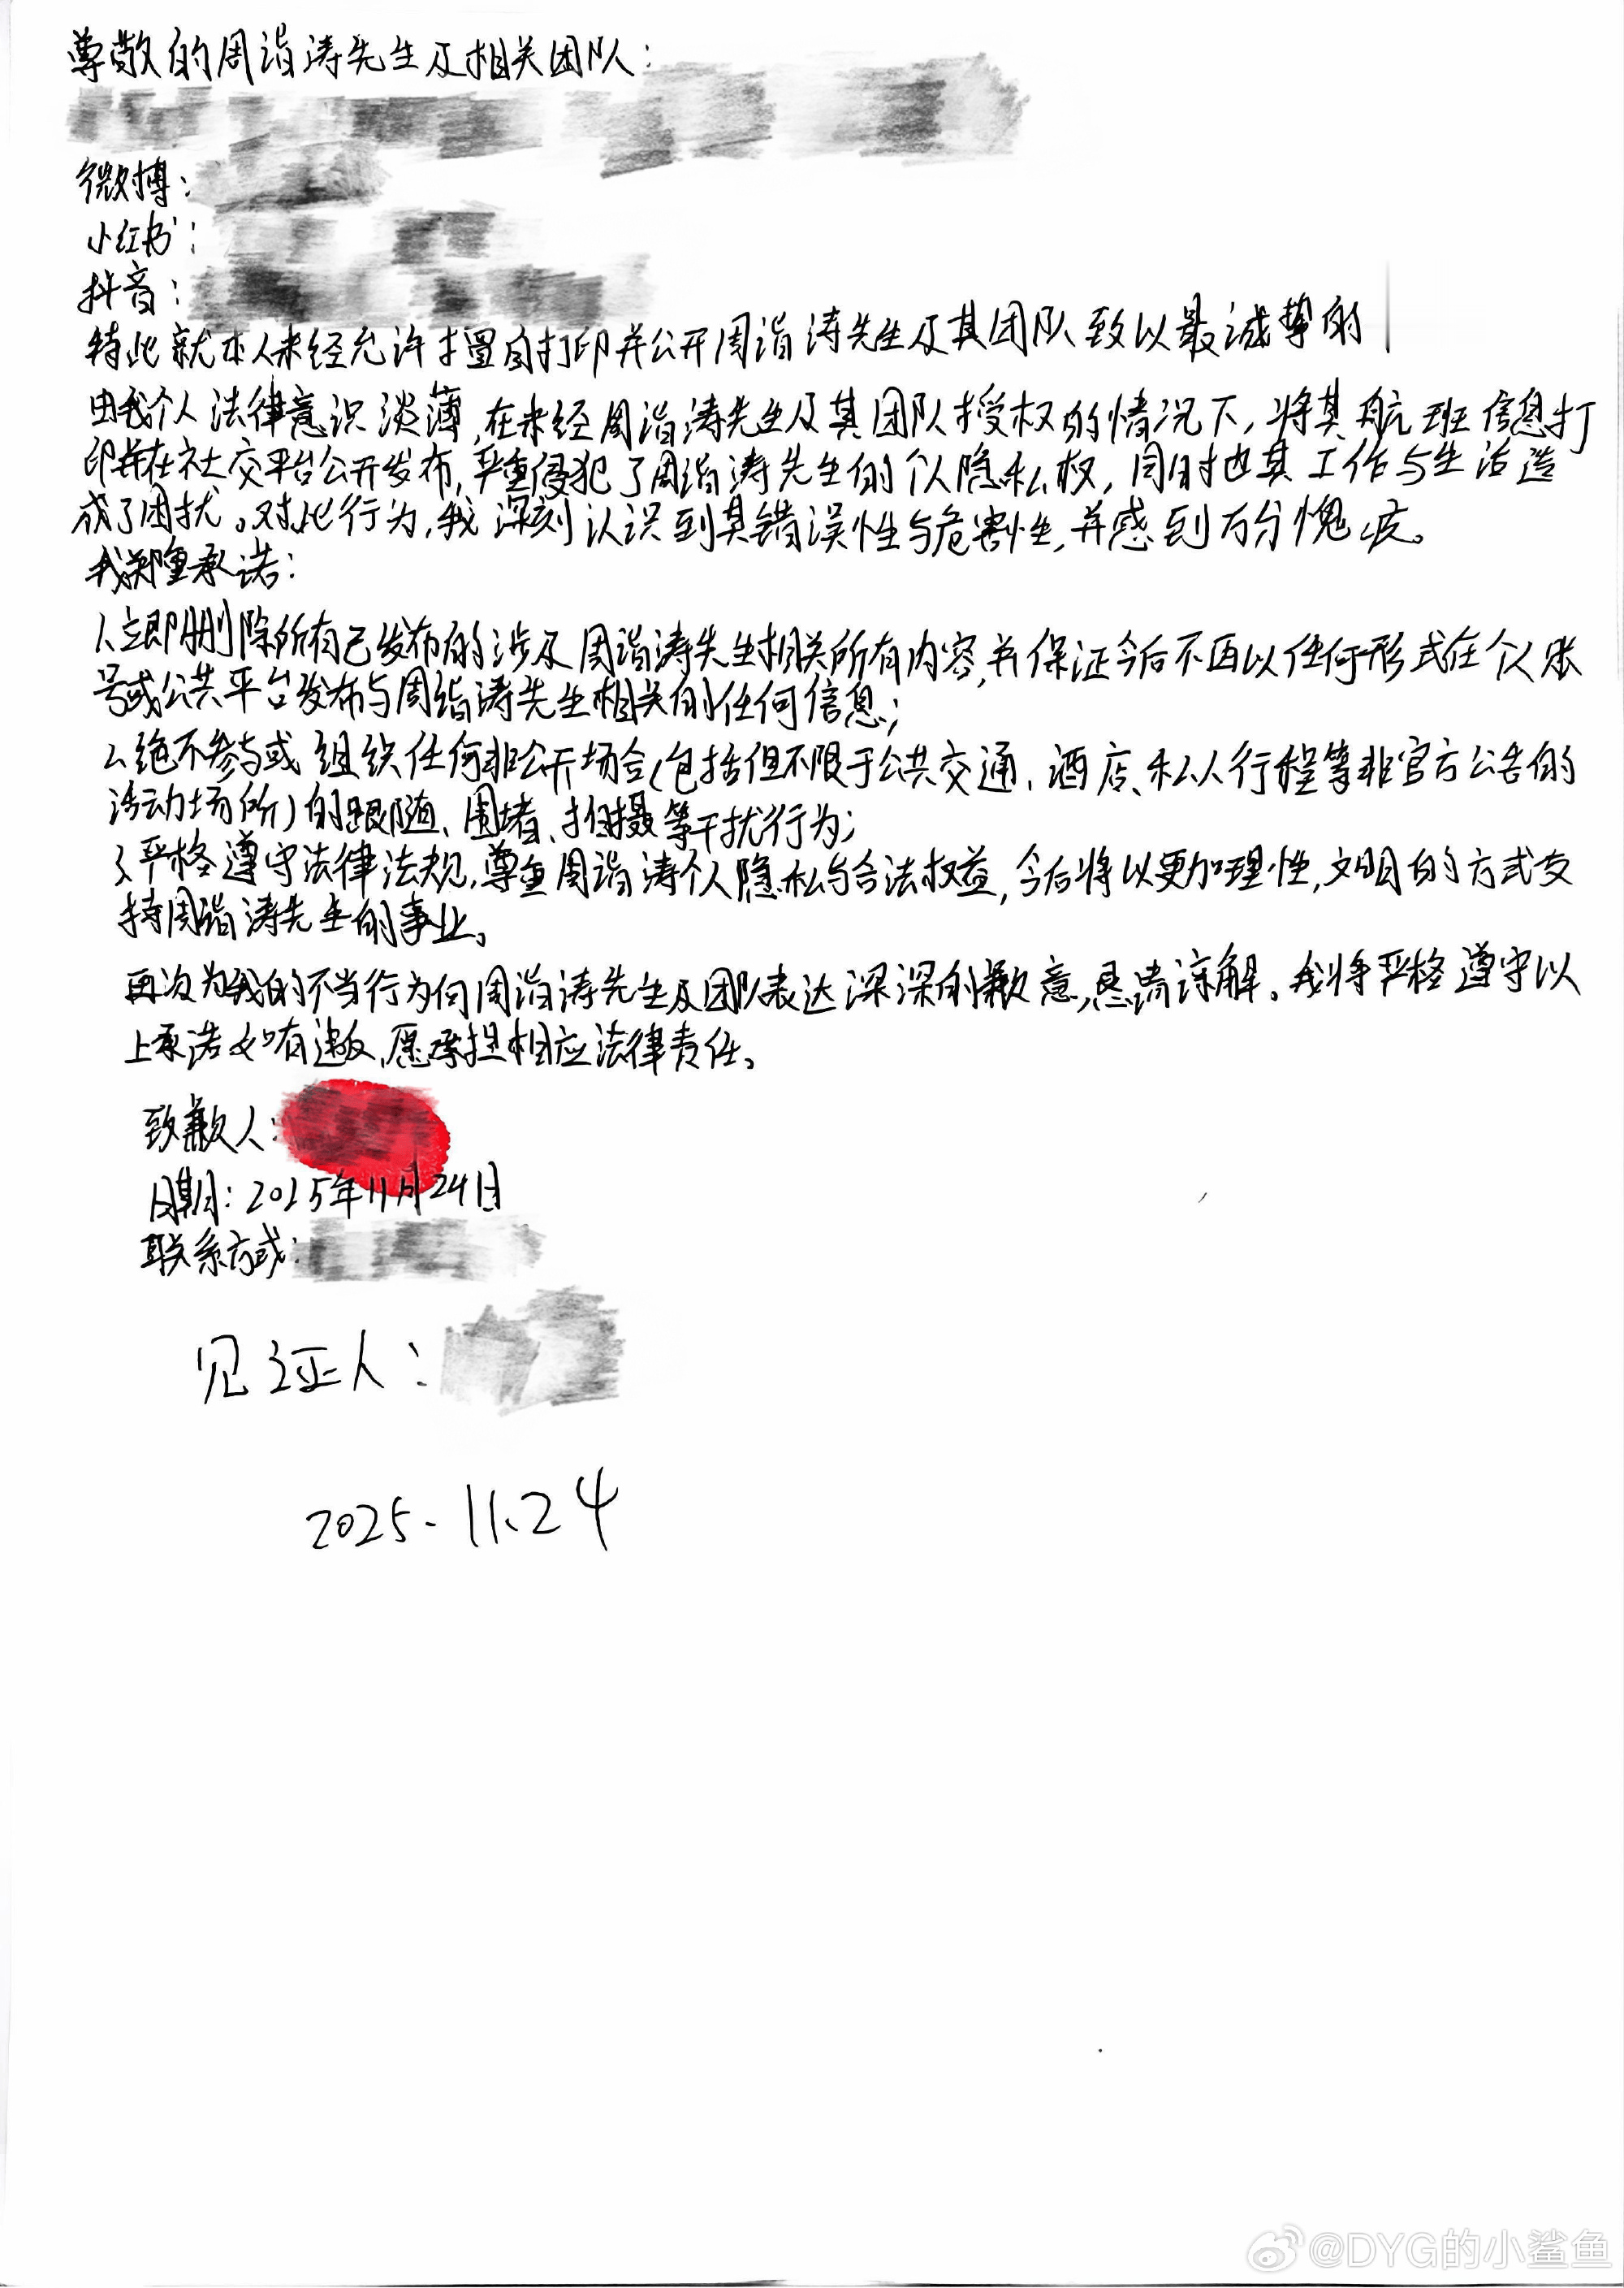 尊敬的周诣涛先生及相关团队：
微博：
小红书：
抖音：
特此就本人未经允许擅自打印并公开周诣涛先生及其团队致以最诚挚的
由我个人法律意识淡薄，在未经周诣涛先生及其团队授权的情况下，将其航班信息打
印并在社交平台公开发布，严重侵犯了周诣涛先生的个人隐私权，同时也其工作与生活造
成了困扰。对此行为，我深刻认识到其错误性与危害性，并感到万分愧疚。
我郑重承诺：
1、立即删除所有已发布的涉及周诣涛先生相关所有内容，并保证今后不再以任何形式在个人账
号或公共平台发布与周诣涛先生相关的任何信息；
2、绝不参与或组织任何非公开场合（包括但不限于公共交通、酒店、私人行程等非官方公告的
活动场所）的跟随、围堵、拍摄等干扰行为；
3、严格遵守法律法规，尊重周诣涛个人隐私与合法权益，今后将以更加理性，文明的方式支
持周诣涛先生的事业。
再次为我的不当行为向周诣涛先生及团队表达深深的歉意，恳请谅解。我将严格遵守以
上承诺如有违反、愿承担相应法律责任。
致歉人：
日期：2025年11月24日
联系方式：
见证人：
2025.11.24
@DYG的小鲨鱼